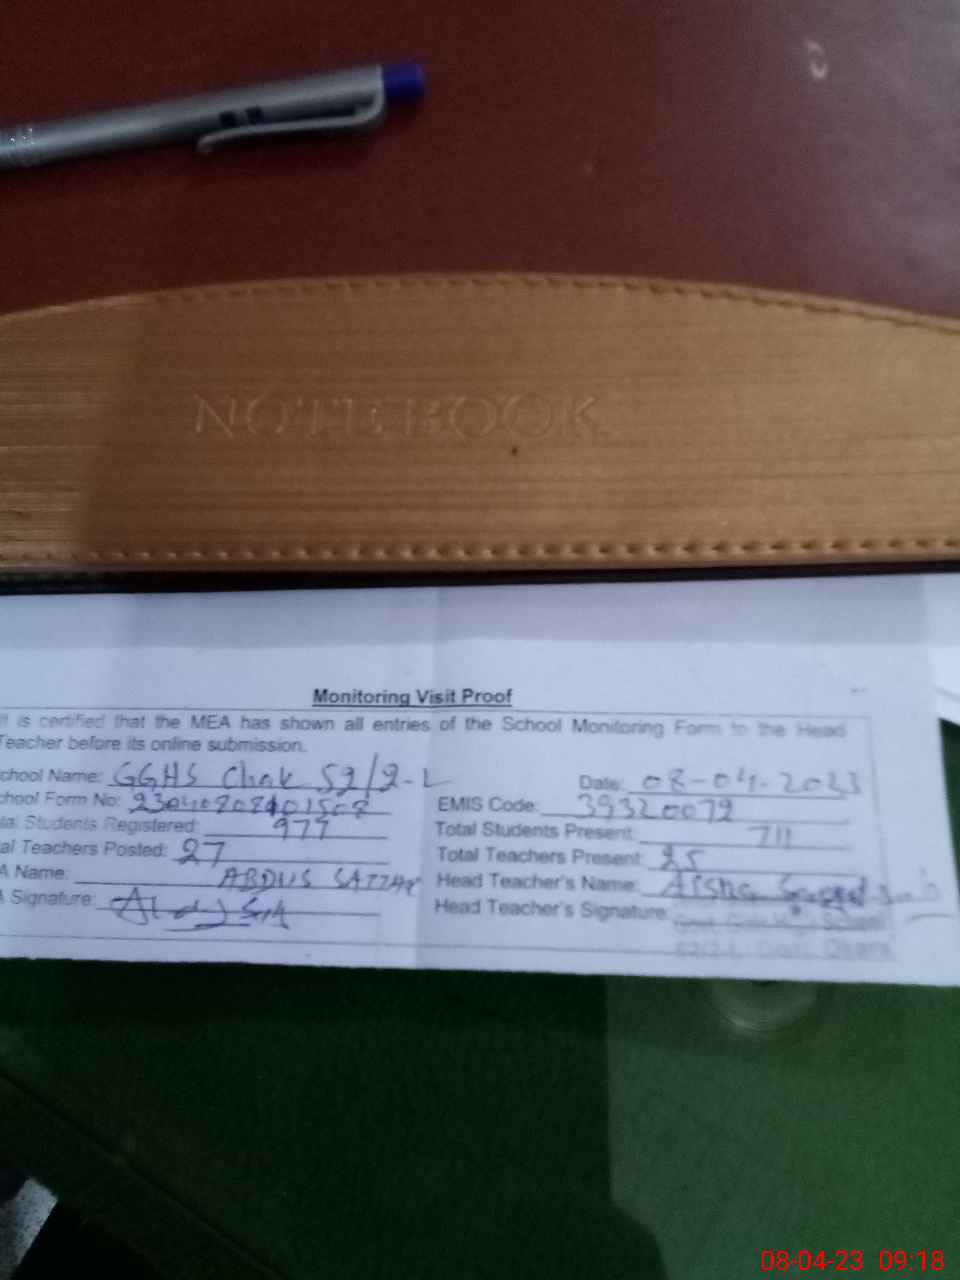 NOTEBOOK
Monitoring Visit Proof
It is certified that the MEA has shown all entries of the School Monitoring Form to the Head
Teacher before its online submission.
chool Name: GGHS Chak 52/2-L Date: 08-04-2023
chool Form No: EMIS Code: 39320079
tal Students Registered: 977 Total Students Present: 711
al Teachers Posted: 27 Total Teachers Present: 25
A Name: ABDUS SATTAR Head Teacher's Name: Aisha
A Signature: Head Teacher's Signature:
Govt. Girls High School
08-04-23 09:18